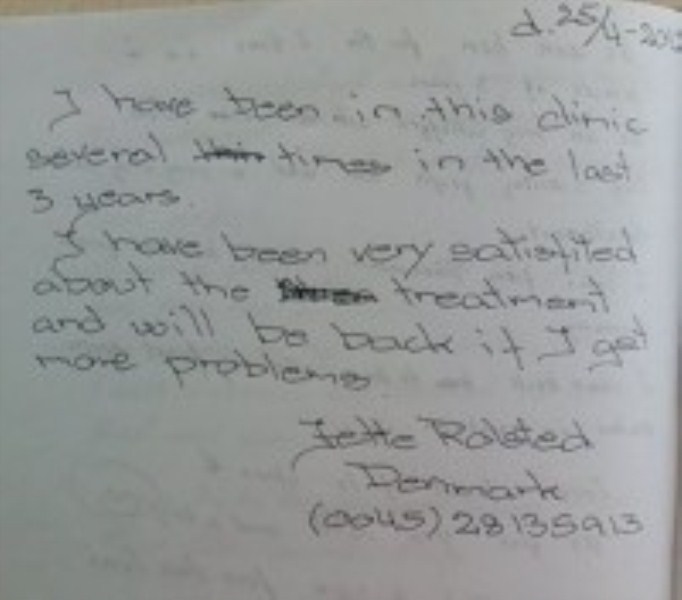 d. 25/4-2012
I have been in this clinic
several times in the last
3 years.
I have been very satisfited
about the treatment
and will be back if I get
more problems
Jette Rolsted
Denmark
(0045) 28135913